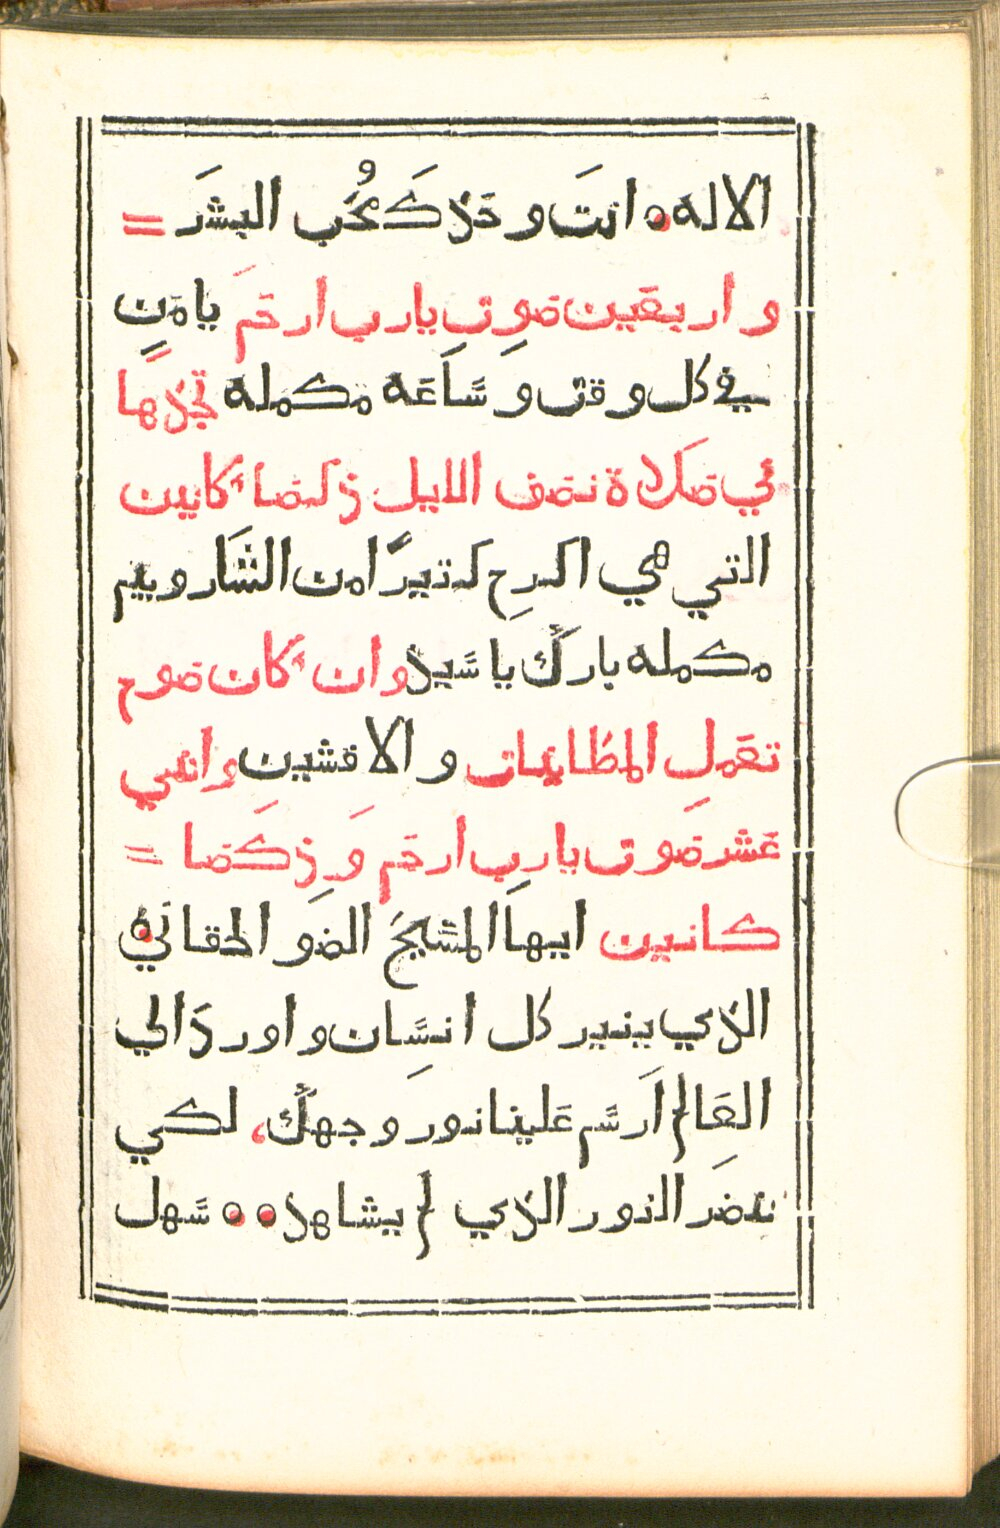 الاله انتَ وحدكَ مُحُب البشرَ =
واربعين صوت يارب ارحمَ يا من
في كل وقت وسَاعَه مكمله تجدها
في صلاة نصف الليل ذكصا كانين
التي هي اكرم كتيرًا من الشاروبيم
مكمله باركْ يا سَيد وان كان صوم
تعمل المطانيات والافشين واثني
عشر صوت يارب ارحم وَذكصا =
كانين ايها المسيح الضو الحقاني
الدي ينير كل انسَان واورد الي
العَالم ارسَم عَلينا نور وجهكْ، لكي
ننضر النور الدي لم يشاهد سَهل